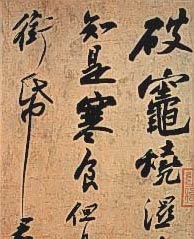 破竈燒濕
知是寒食但
銜帋